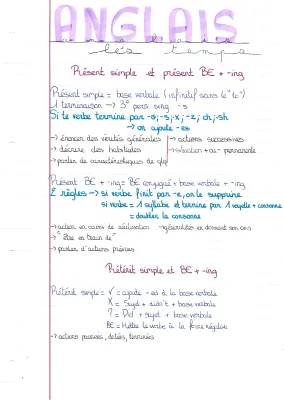 ANGLAIS
les temps
Présent simple et présent BE + -ing
Présent simple = base verbale (infinitif sans le "to")
1 terminaison → 3e pers sing -s
Si le verbe termine par -o, -s, -x, -z, ch, sh
→ on ajoute -es
→ énoncer des vérités générales
→ actions successives
→ décrire des habitudes
→ situation + ou - permanente
→ parler de caractéristiques de qqn
Présent BE + -ing = BE conjugué + base verbale + -ing
2 règles → si verbe finit par -e, on le supprime
si verbe = 1 syllabe et termine par 1 voyelle + consonne
= doubler la consonne
→ action en cours de réalisation
→ "être en train de"
→ parler d'actions prévues
Prétérit simple et BE + -ing
Prétérit simple = √ = ajoute -ed à la base verbale
X = Sujet + didn't + base verbale
? = Did + sujet + base verbale
BE = Mettre le verbe à la forme
→ actions passées, datées, terminées